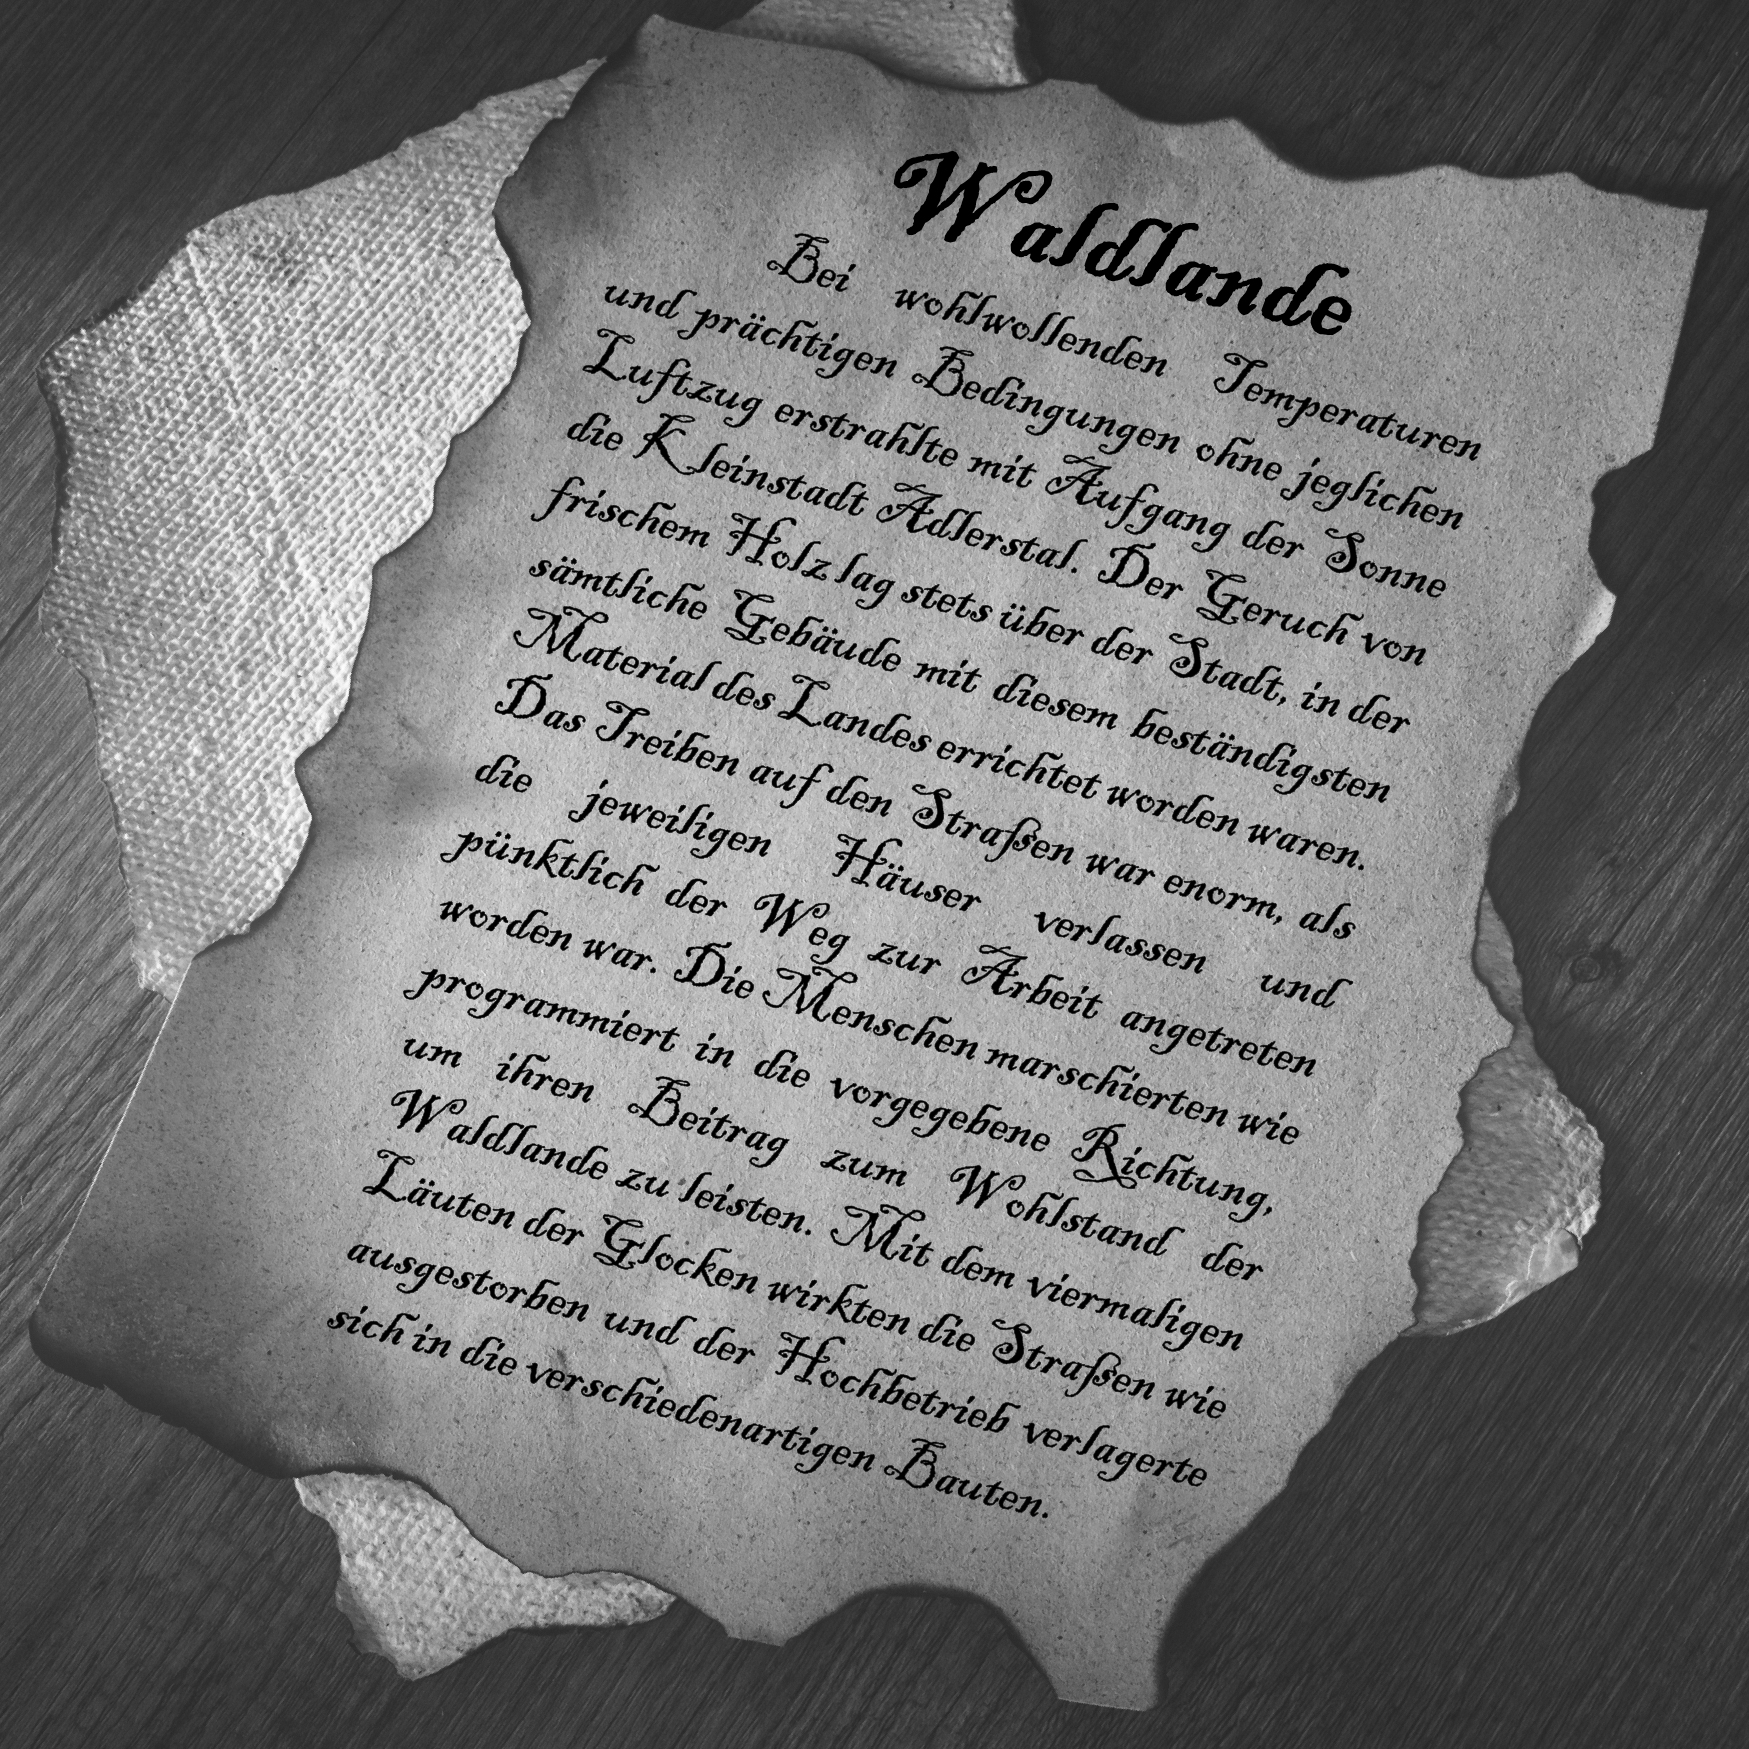 Waldlande
Bei wohlwollenden Temperaturen
und prächtigen Bedingungen ohne jeglichen
Luftzug erstrahlte mit Aufgang der Sonne
die Kleinstadt Adlerstal. Der Geruch von
frischem Holz lag stets über der Stadt, in der
sämtliche Gebäude mit diesem beständigsten
Material des Landes errichtet worden waren.
Das Treiben auf den Straßen war enorm, als
die jeweiligen Häuser verlassen und
pünktlich der Weg zur Arbeit angetreten
worden war. Die Menschen marschierten wie
programmiert in die vorgegebene Richtung,
um ihren Beitrag zum Wohlstand der
Waldlande zu leisten. Mit dem viermaligen
Läuten der Glocken wirkten die Straßen wie
ausgestorben und der Hochbetrieb verlagerte
sich in die verschiedenartigen Bauten.